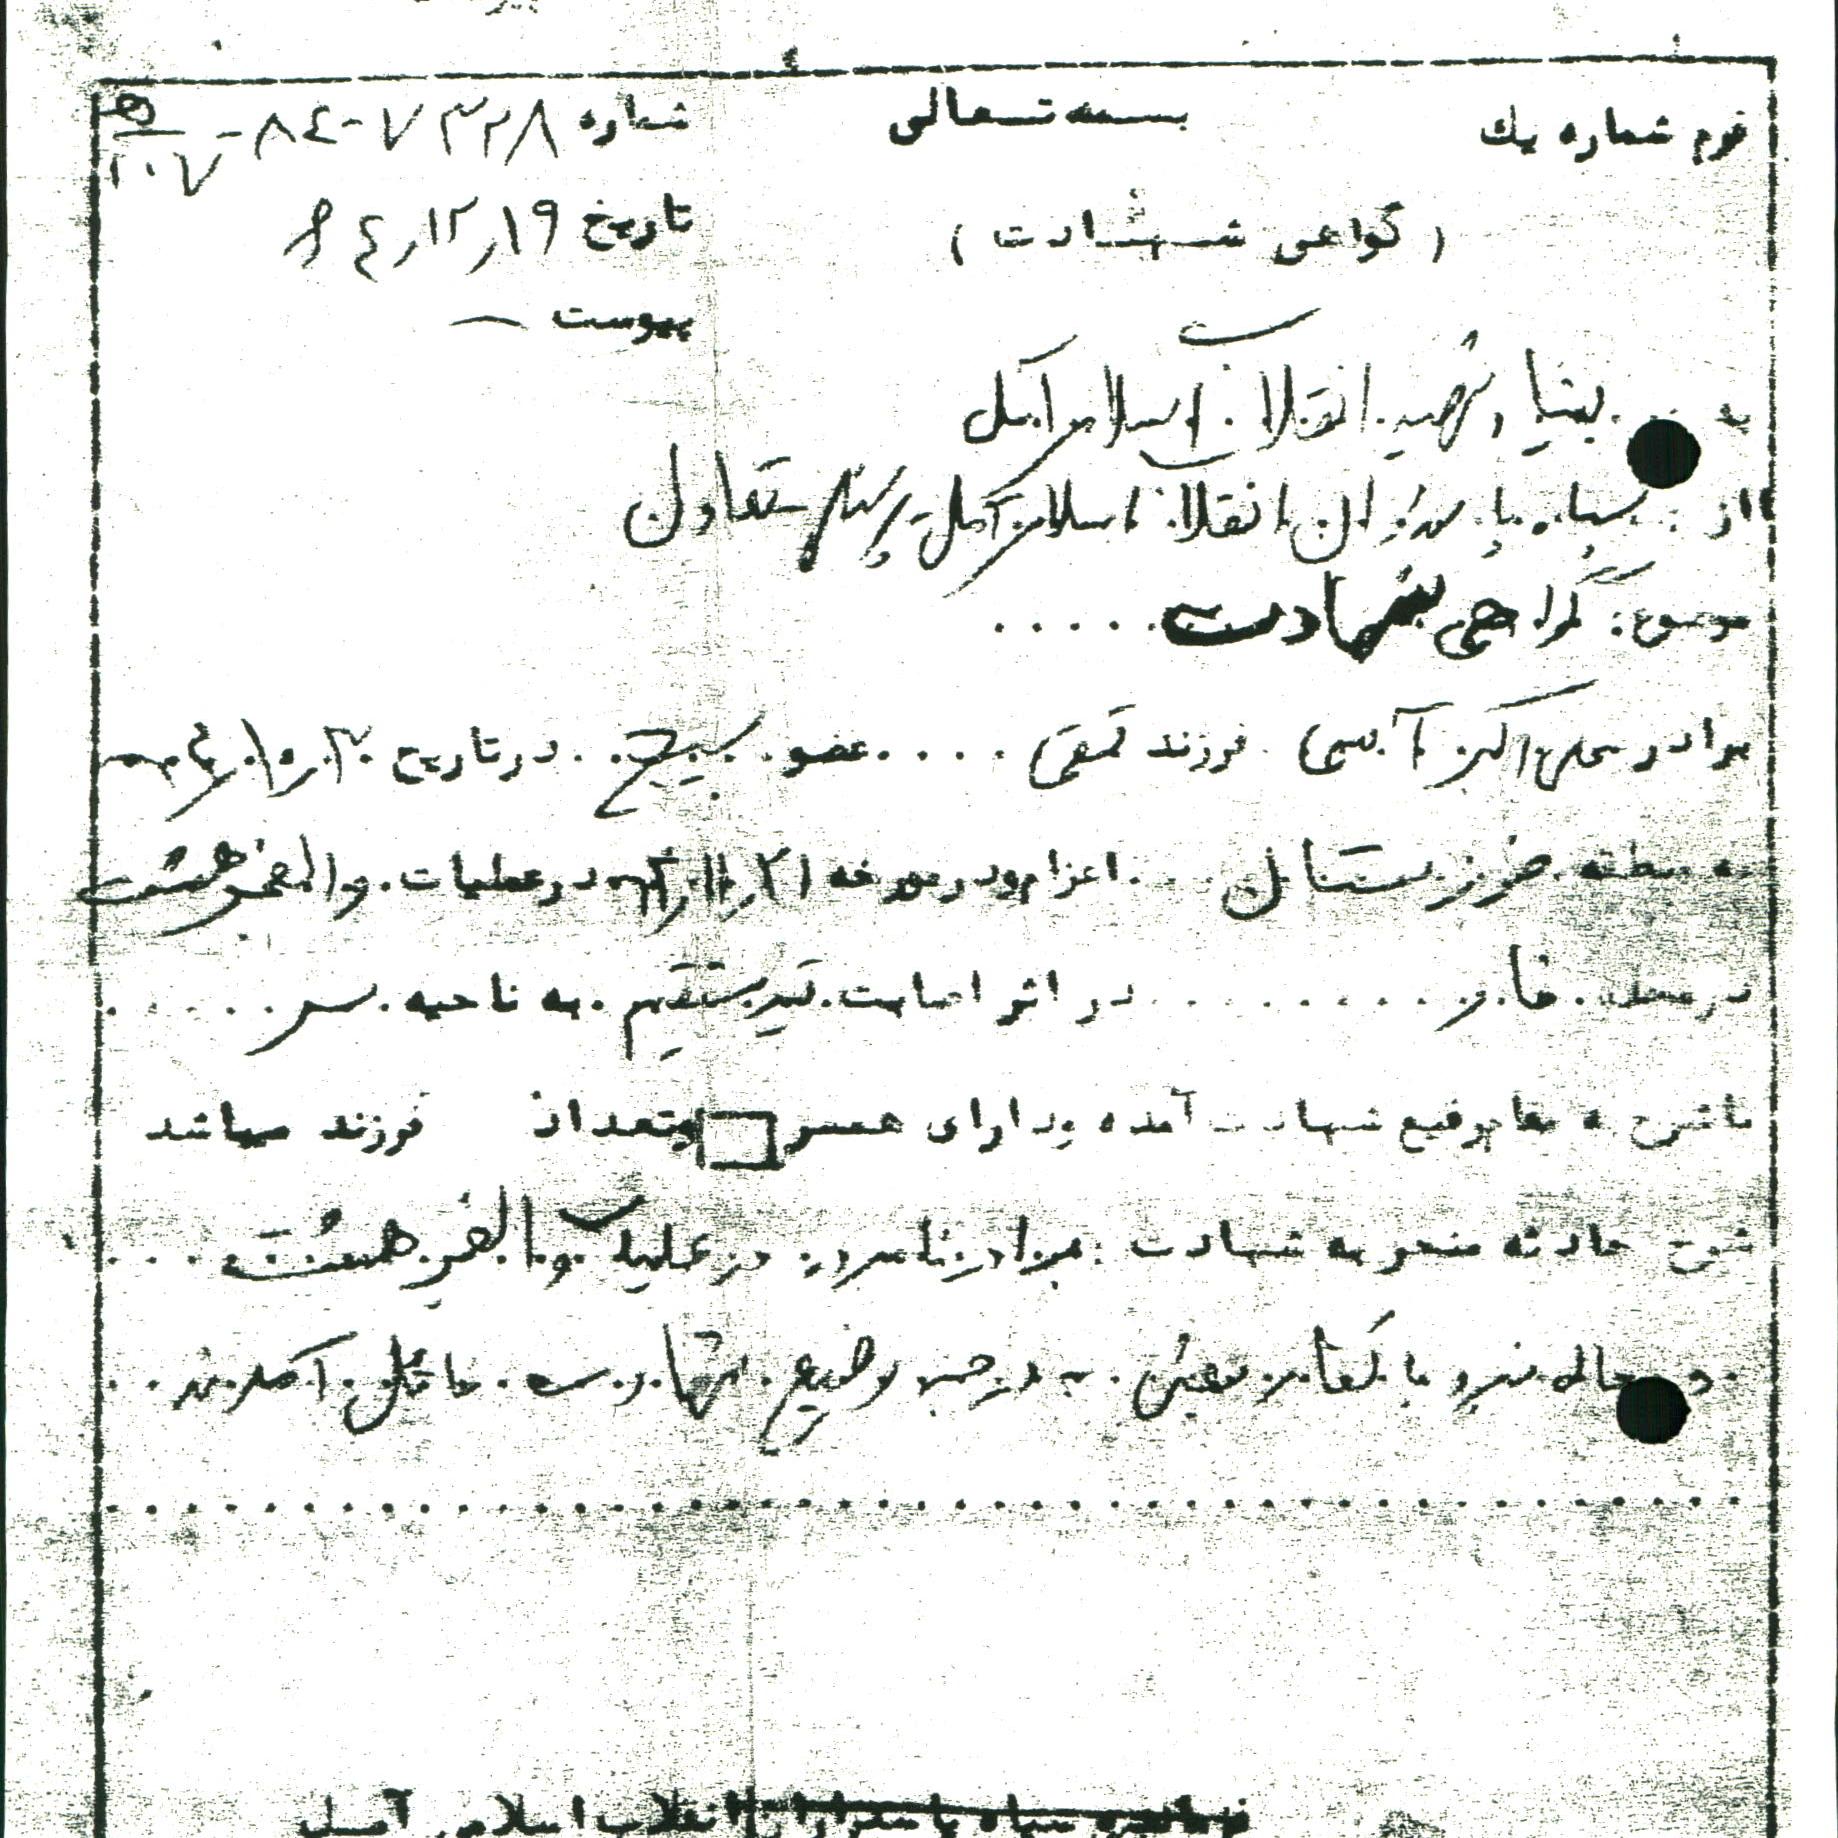 فرم شماره یك
بسمه تعالی
شماره ۷۳۲۸-۸۴-
۱۰۷
(گواهی شهادت)
تاریخ ۱۹ر۱۲ر۶۴
پیوست —
به بنیاد شهید انقلاب اسلامی آمل
از: سپاه پاسداران انقلاب اسلامی آمل - پرسنلی تعاون
موضوع: گواهی شهادت .....
برادر علی اکبر فرزند تقی .... عضو بسیج در تاریخ
به منطقه خوزستان اعزام و در مورخه در عملیات والفجر هشت
در محل فاو ........ در اثر اصابت تیر مستقیم به ناحیه سر .....
نائل به مقام رفیع شهادت آمده و دارای همسر وتعداد فرزند میباشد
شرح حادثه منجر به شهادت برادر نامبرده در عملیات والفجر هشت ...
در حال نبرد با کفار بعثی به درجه رفیع شهادت نائل آمدند ..
سپاه پاسداران انقلاب اسلامی آمل